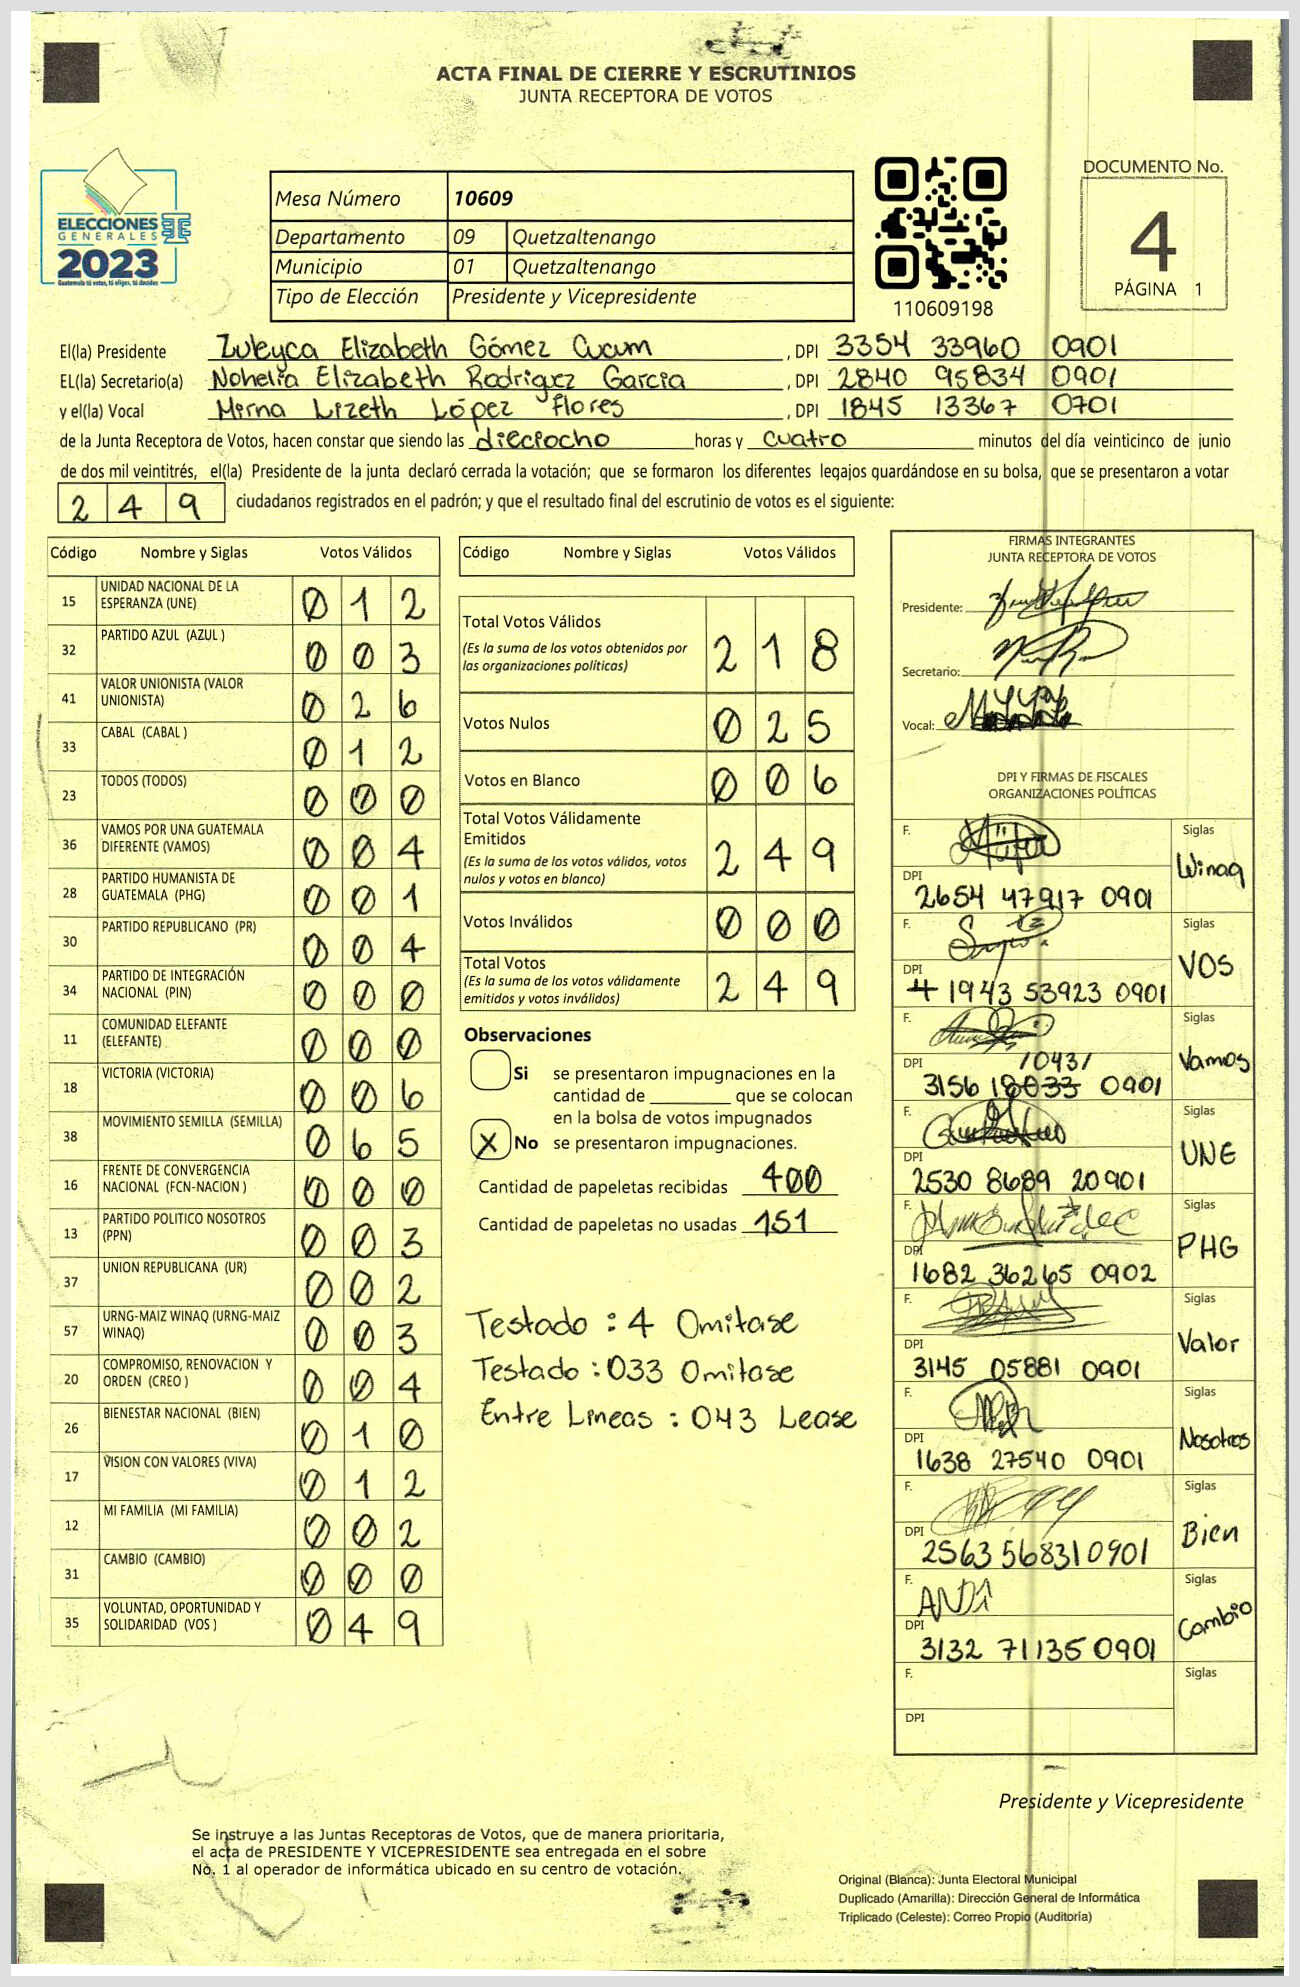 ACTA FINAL DE CIERRE Y ESCRUTINIOS
JUNTA RECEPTORA DE VOTOS
ELECCIONES
GENERALES
2023
Guatemala tú votas, tú eliges, tú decides
Mesa Número 10609
Departamento 09 Quetzaltenango
Municipio 01 Quetzaltenango
Tipo de Elección Presidente y Vicepresidente
110609198
DOCUMENTO No.
4
PÁGINA 1
El(la) Presidente Zuleyca Elizabeth Gómez Cucum , DPI 3354 33960 0901
EL(la) Secretario(a) Nohelia Elizabeth Rodriguez Garcia , DPI 2840 95834 0901
y el(la) Vocal Mirna Lizeth López Flores , DPI 1845 13367 0701
de la Junta Receptora de Votos, hacen constar que siendo las dieciocho horas y cuatro minutos del día veinticinco de junio
de dos mil veintitrés, el(la) Presidente de la junta declaró cerrada la votación; que se formaron los diferentes legajos guardándose en su bolsa, que se presentaron a votar
2 4 9 ciudadanos registrados en el padrón; y que el resultado final del escrutinio de votos es el siguiente:
Código Nombre y Siglas Votos Válidos
15 UNIDAD NACIONAL DE LA
ESPERANZA (UNE) 0 1 2
32 PARTIDO AZUL (AZUL ) 0 0 3
41 VALOR UNIONISTA (VALOR
UNIONISTA) 0 2 6
33 CABAL (CABAL ) 0 1 2
23 TODOS (TODOS) 0 0 0
36 VAMOS POR UNA GUATEMALA
DIFERENTE (VAMOS) 0 0 4
28 PARTIDO HUMANISTA DE
GUATEMALA (PHG) 0 0 1
30 PARTIDO REPUBLICANO (PR) 0 0 4
34 PARTIDO DE INTEGRACIÓN
NACIONAL (PIN) 0 0 0
11 COMUNIDAD ELEFANTE
(ELEFANTE) 0 0 0
18 VICTORIA (VICTORIA) 0 0 6
38 MOVIMIENTO SEMILLA (SEMILLA) 0 6 5
16 FRENTE DE CONVERGENCIA
NACIONAL (FCN-NACION ) 0 0 0
13 PARTIDO POLITICO NOSOTROS
(PPN) 0 0 3
37 UNION REPUBLICANA (UR) 0 0 2
57 URNG-MAIZ WINAQ (URNG-MAIZ
WINAQ) 0 0 3
20 COMPROMISO, RENOVACION Y
ORDEN (CREO ) 0 0 4
26 BIENESTAR NACIONAL (BIEN) 0 1 0
17 VISION CON VALORES (VIVA) 0 1 2
12 MI FAMILIA (MI FAMILIA) 0 0 2
31 CAMBIO (CAMBIO) 0 0 0
35 VOLUNTAD, OPORTUNIDAD Y
SOLIDARIDAD (VOS ) 0 4 9
Código Nombre y Siglas Votos Válidos
Total Votos Válidos 2 1 8
(Es la suma de los votos obtenidos por
las organizaciones políticas)
Votos Nulos 0 2 5
Votos en Blanco 0 0 6
Total Votos Válidamente
Emitidos 2 4 9
(Es la suma de los votos válidos, votos
nulos y votos en blanco)
Votos Inválidos 0 0 0
Total Votos 2 4 9
(Es la suma de los votos válidamente
emitidos y votos inválidos)
Observaciones
Si se presentaron impugnaciones en la
cantidad de ________ que se colocan
en la bolsa de votos impugnados
X No se presentaron impugnaciones.
Cantidad de papeletas recibidas 400
Cantidad de papeletas no usadas 151
Testado : 4 Omitase
Testado : 033 Omitase
Entre Lineas : 043 Lease
FIRMAS INTEGRANTES
JUNTA RECEPTORA DE VOTOS
Presidente:
Secretario:
Vocal:
DPI Y FIRMAS DE FISCALES
ORGANIZACIONES POLÍTICAS
F. Siglas
Winaq
DPI
2654 47917 0901
F. Siglas
VOS
DPI
4 1943 53923 0901
F. Siglas
Vamos
DPI /043/
3156 18033 0901
F. Siglas
UNE
DPI
2530 8689 20901
F. Siglas
PHG
DPI
1682 36265 0902
F. Siglas
Valor
DPI
3145 05881 0901
F. Siglas
Nosotros
DPI
1638 27540 0901
F. Siglas
Bien
DPI
2563 56831 0901
F. Siglas
Cambio
DPI
3132 71135 0901
F. Siglas
DPI
Presidente y Vicepresidente
Se instruye a las Juntas Receptoras de Votos, que de manera prioritaria,
el acta de PRESIDENTE Y VICEPRESIDENTE sea entregada en el sobre
No. 1 al operador de informática ubicado en su centro de votación.
Original (Blanca): Junta Electoral Municipal
Duplicado (Amarilla): Dirección General de Informática
Triplicado (Celeste): Correo Propio (Auditoría)